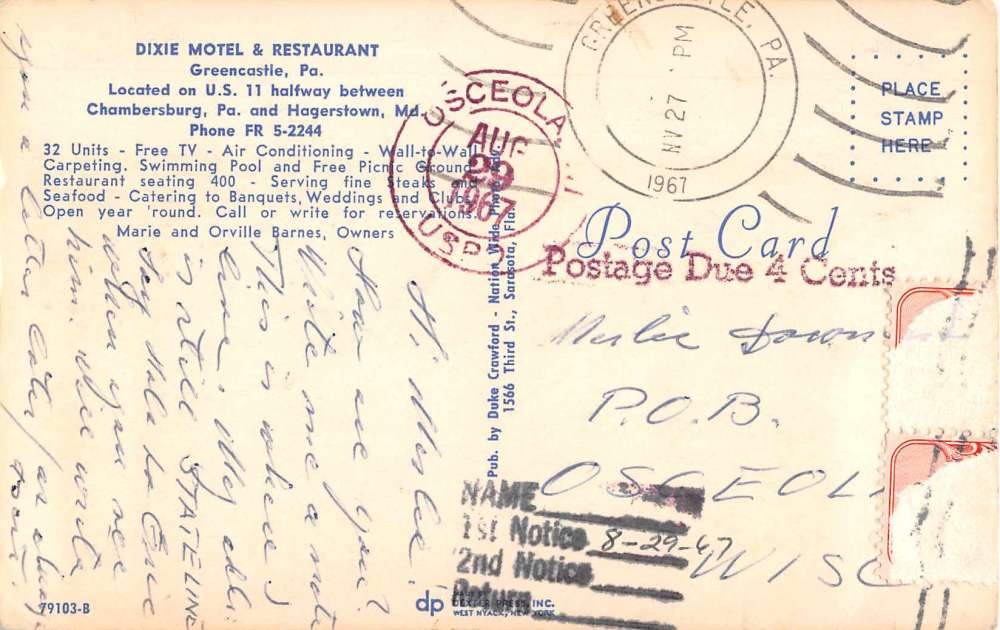 DIXIE MOTEL & RESTAURANT
Greencastle, Pa.
Located on U.S. 11 halfway between
Chambersburg, Pa. and Hagerstown, Md.
Phone FR 5-2244
32 Units - Free TV - Air Conditioning - Wall-to-Wall
Carpeting. Swimming Pool and Free Picnic Ground.
Restaurant seating 400 - Serving fine Steaks and
Seafood - Catering to Banquets, Weddings and Clubs.
Open year 'round. Call or write for reservations.
Marie and Orville Barnes, Owners
Hi Merlie!
How are you?
Write me a note
This is where I
live. My add.
is still STATELINE
Say Hello to
when you see
him. We write
you a letter later / as always
79103-B
Pub. by Duke Crawford - Nation Wide Photo Adv.
1566 Third St., Sarasota, Fla.
dp
DEXTER PRESS, INC.
WEST NYACK, NEW YORK
OSCEOLA,
AUG
29
1967
USPO
GREENCASTLE, PA.
PM
NV 27
1967
PLACE
STAMP
HERE
Post Card
Postage Due 4 Cents
Merlie
P.O.B.
OSCEOLA
WISC
NAME
1st Notice 8-29-67
2nd Notice
Return